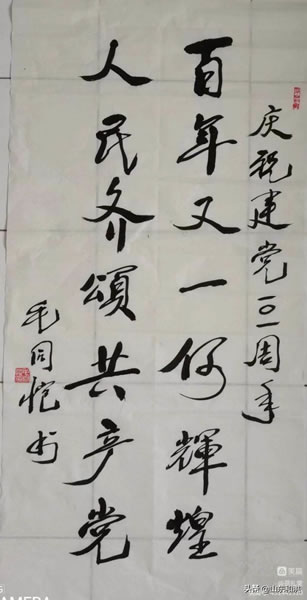 庆祝建党一〇一周年
百年又一何輝煌
人民齐頌共产党
毛同恺书
AMERA
头条